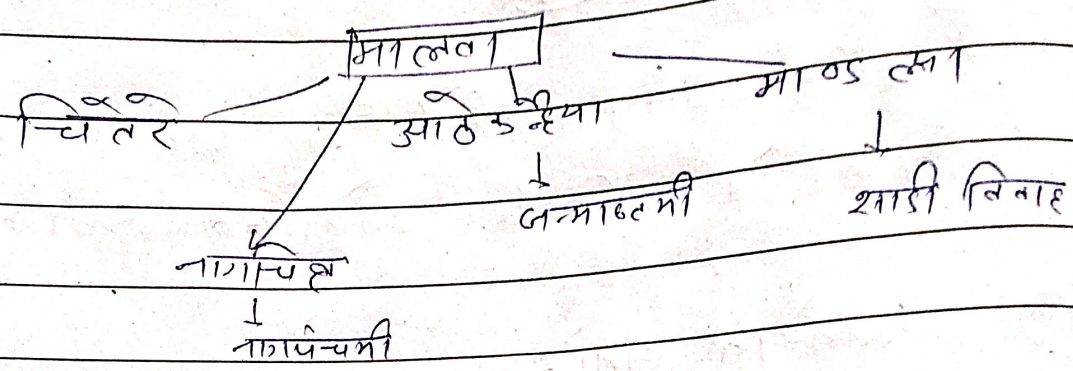 मालवा
चितेरे
आठे कन्हैया
माण्डना
जन्माष्टमी
शादी विवाह
नागचिह्न
नागपंचमी